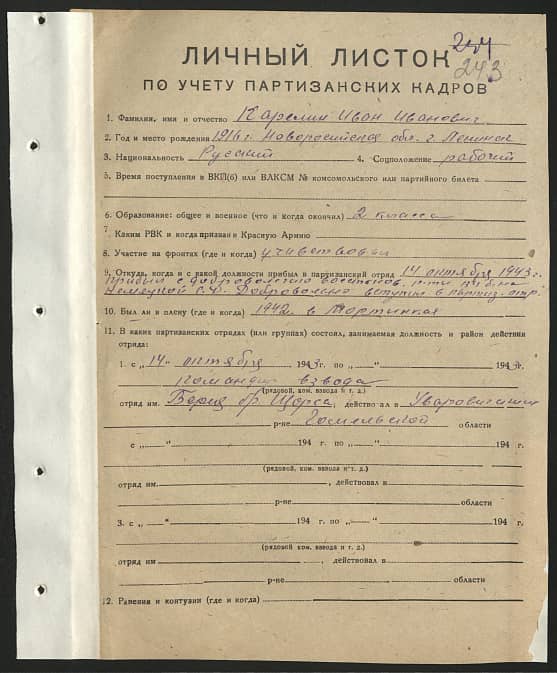 ЛИЧНЫЙ ЛИСТОК 244
243
ПО УЧЕТУ ПАРТИЗАНСКИХ КАДРОВ
1. Фамилия, имя и отчество Карелин Иван Иванович
2. Год и место рождения 1916 г. обл. г. Ленинск
3. Национальность Русский 4. Соцположение рабочий
5. Время поступления в ВКП(б) или ВЛКСМ № комсомольского или партийного билета
6. Образование: общее и военное (что и когда окончил) 2 класса
7. Каким РВК и когда призван в Красную Армию
8. Участие на фронтах (где и когда) участвовал
9. Откуда, когда и с какой должности прибыл в партизанский отряд 14 октября 1943 г.
прибыл с добровольно
Добровольно вступил в партиз. отр.
10. Был ли в плену (где и когда) 1942 г. в
11. В каких партизанских отрядах (или группах) состоял, занимаемая должность и район действия
отряда:
1. с „14“ октября 1943 г. по „ “ 1943 г.
командир взвода
(рядовой, ком. взвода и т. д.)
отряд им. Берия бр. Щорса, действовал в Уваровичском
р-не Гомельской области
с „ “ 194 г. по „ “ 194 г.
(рядовой, ком. взвода и т. д.)
отряд им. , действовал в
р-не области
3. с „ “ 194 г. по „ “ 194 г.
(рядовой, ком. взвода и т. д.)
отряд им , действовал в
р-не области
12. Ранения и контузии (где и когда)